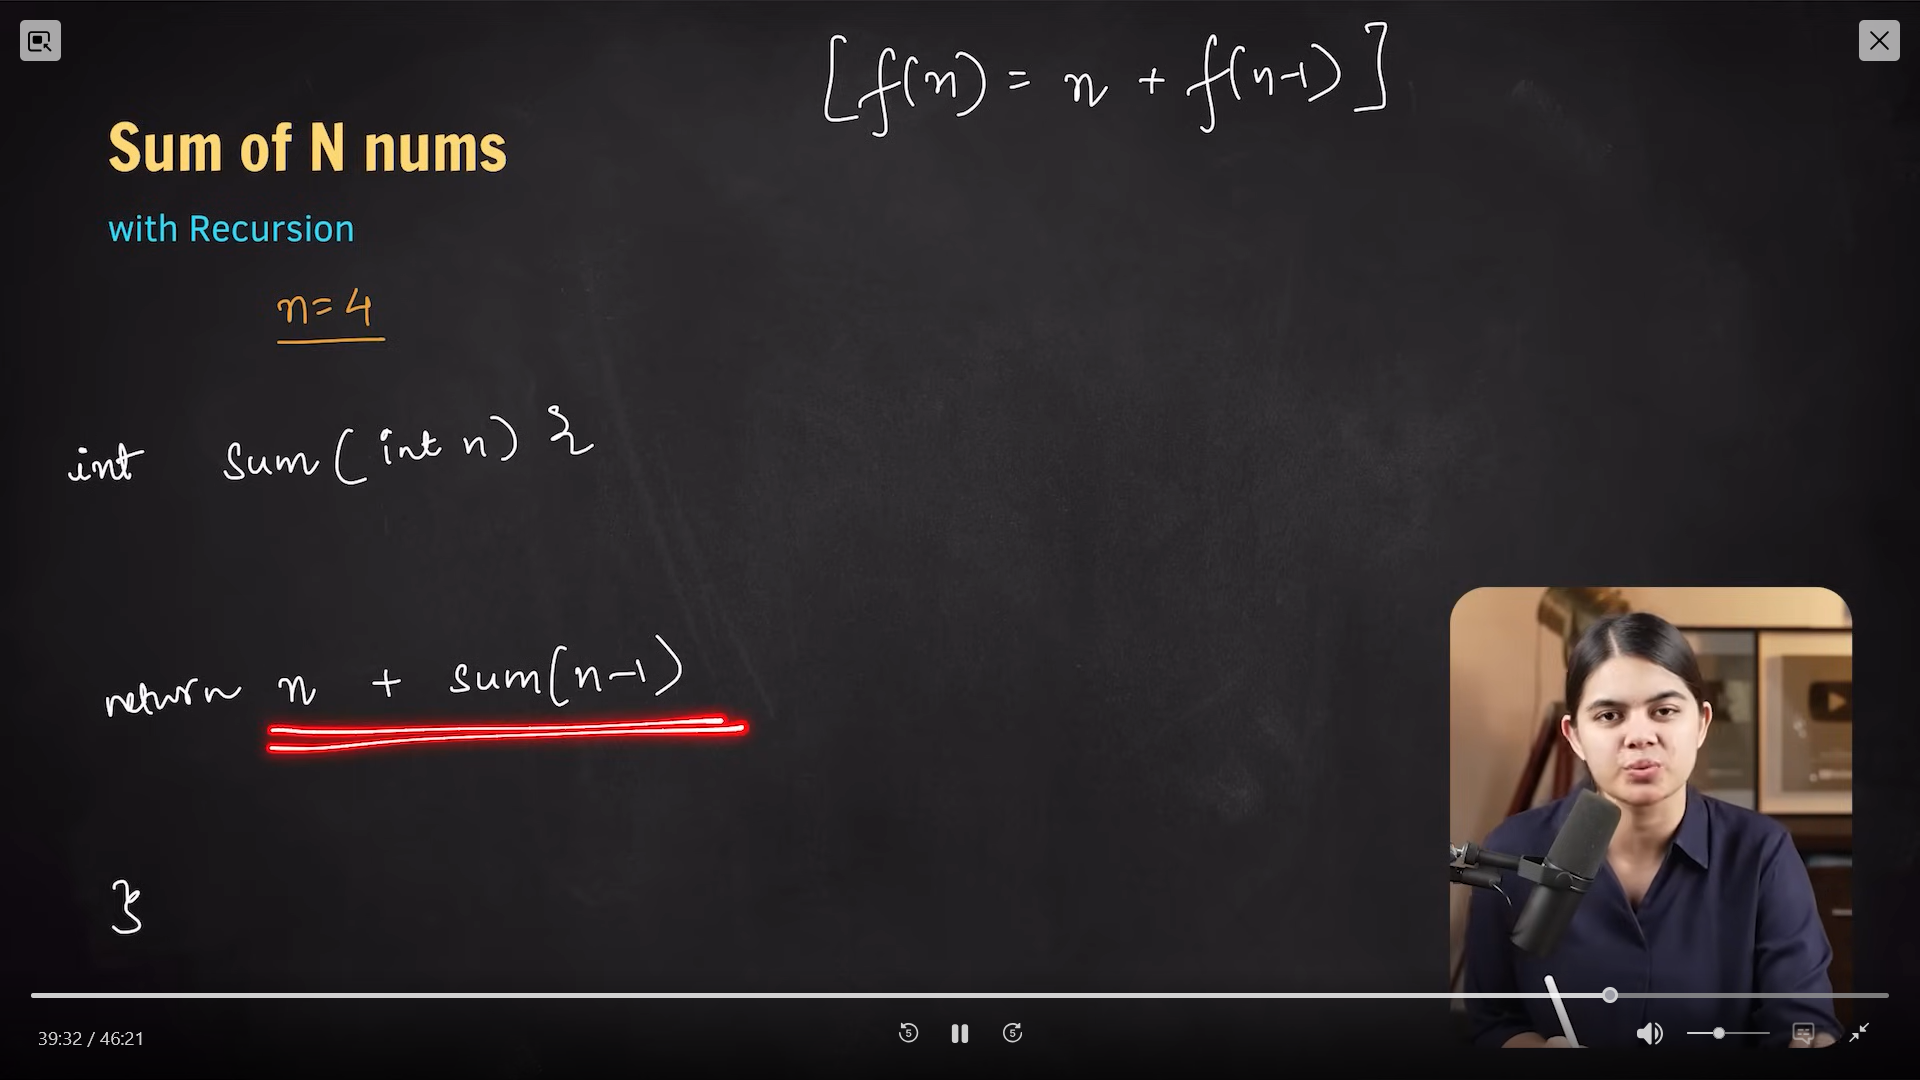 [f(n) = n + f(n-1)]
Sum of N nums
with Recursion
n=4
int sum(int n) {
return n + sum(n-1)
}
39:32 / 46:21
5 5